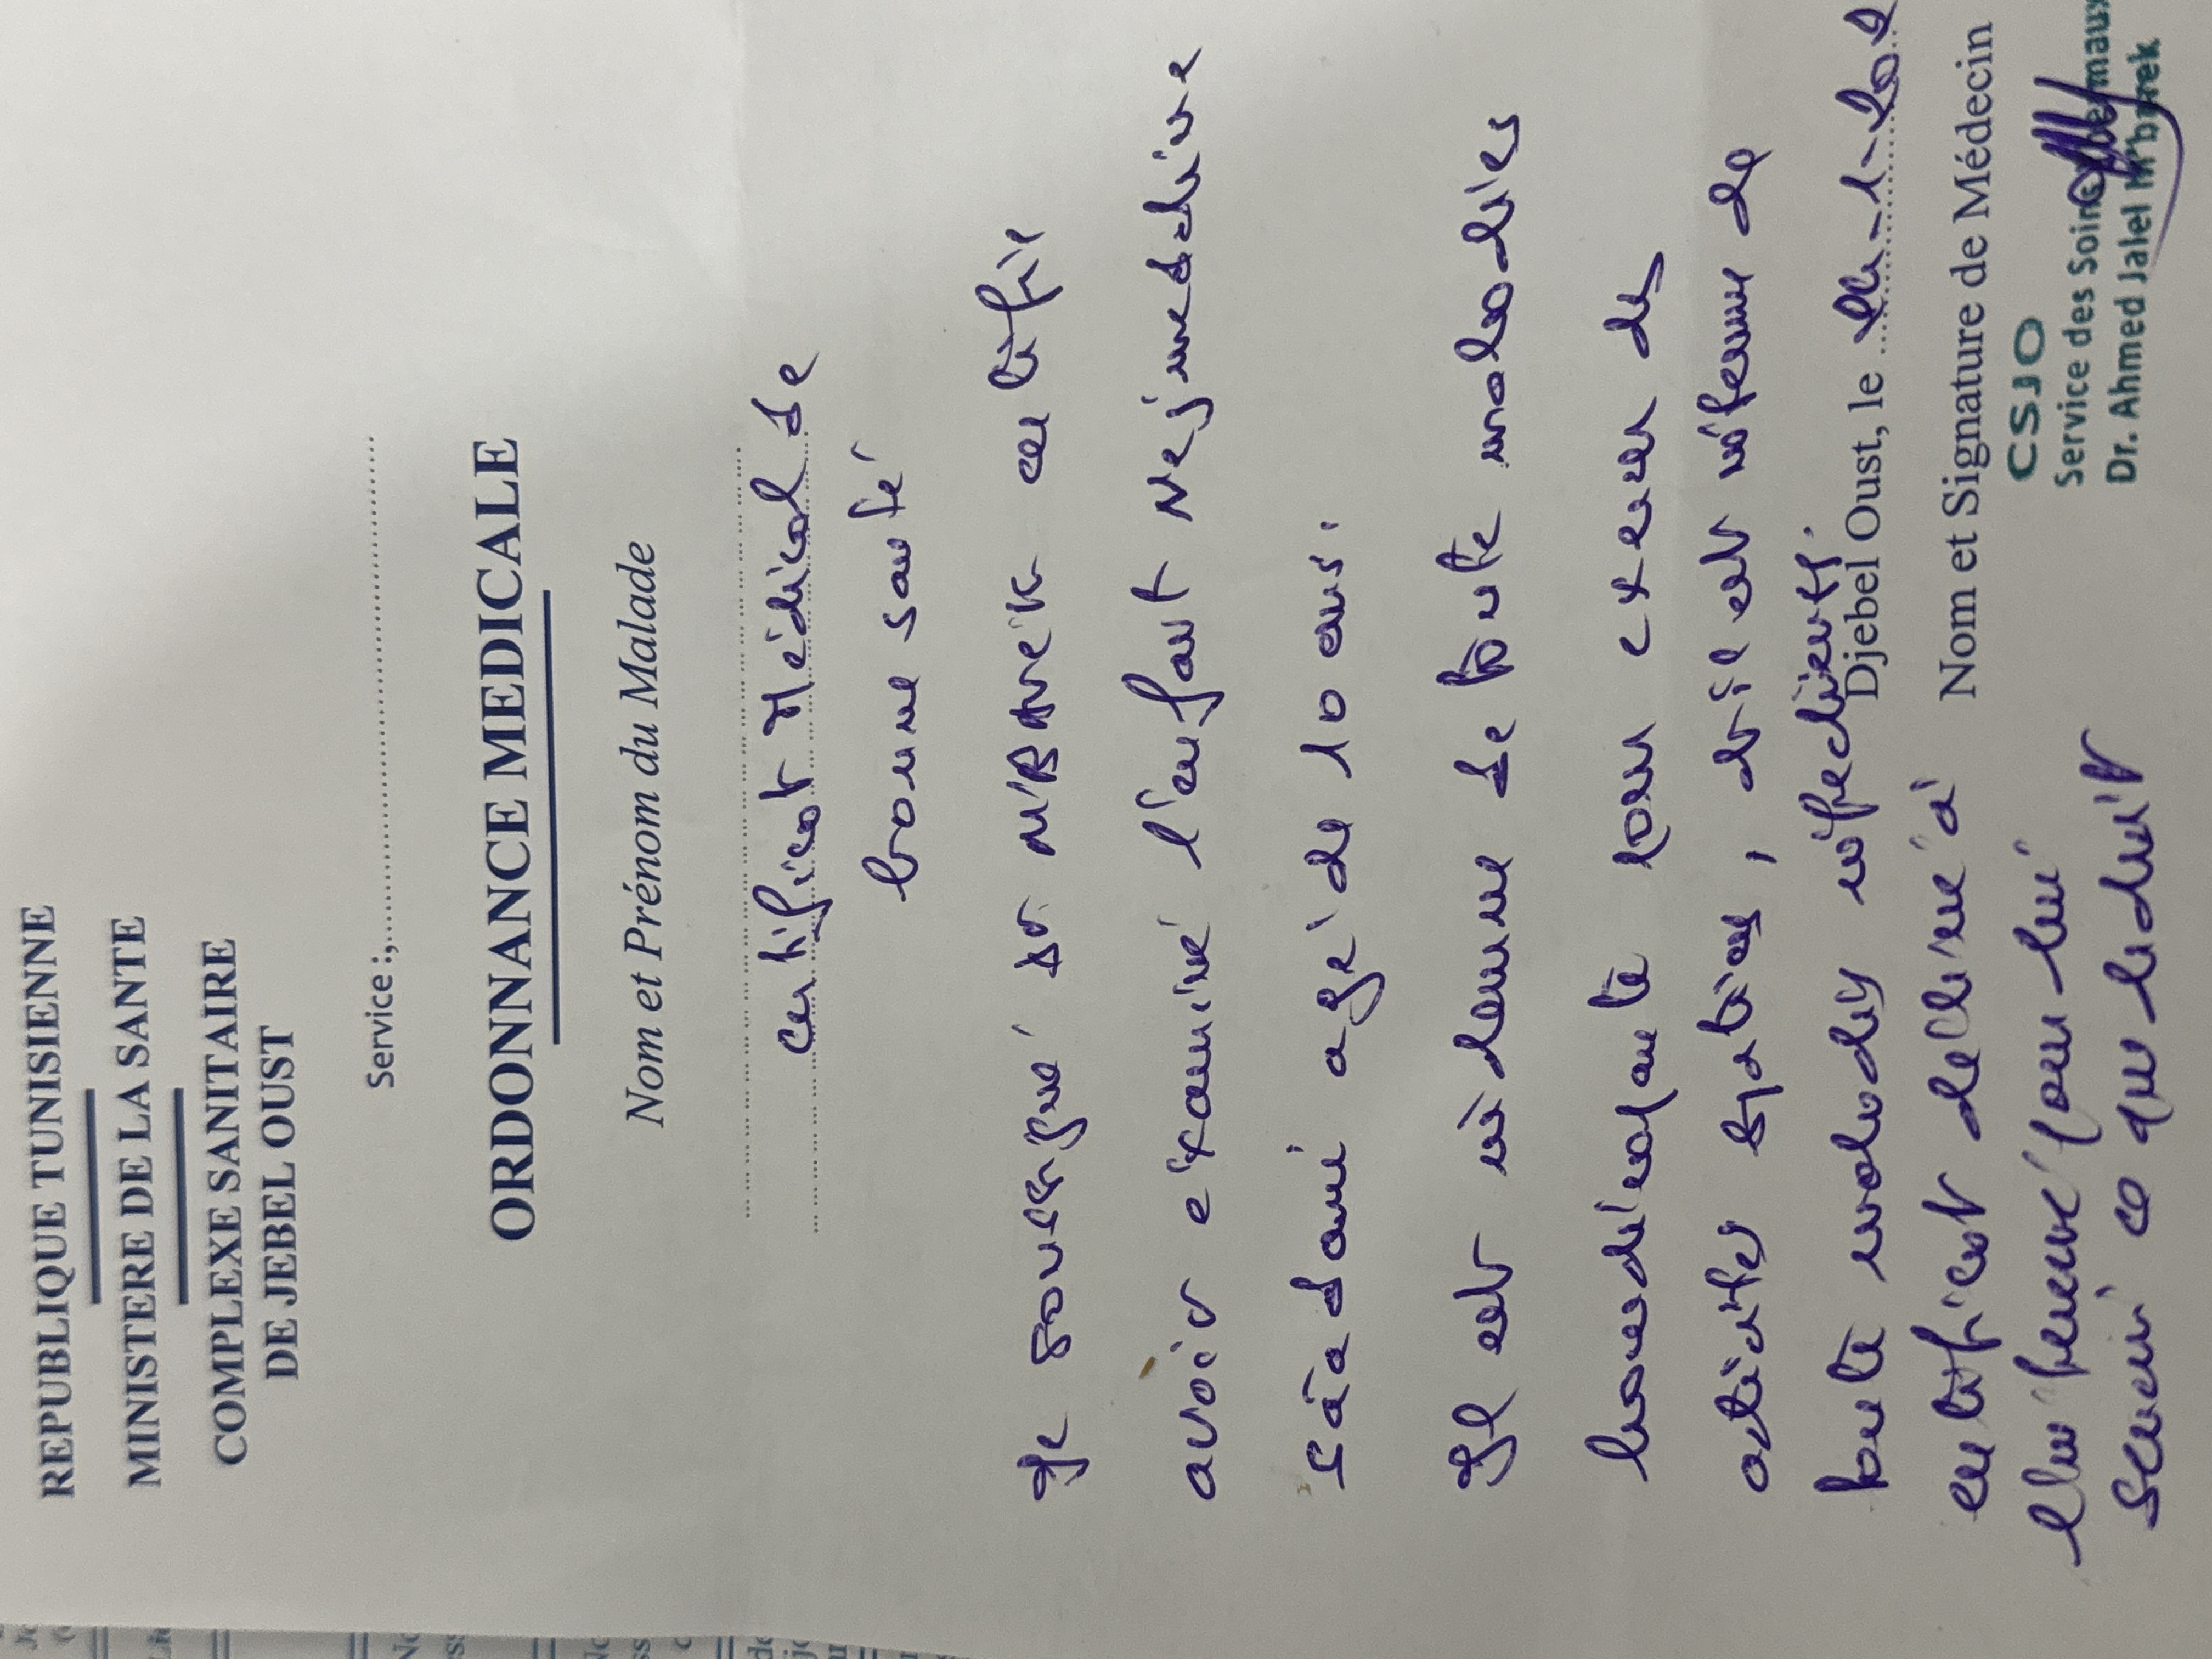 REPUBLIQUE TUNISIENNE
MINISTERE DE LA SANTE
COMPLEXE SANITAIRE
DE JEBEL OUST
Service :,
ORDONNANCE MEDICALE
Nom et Prénom du Malade
certificat Médical de
bonne santé
Je soussigné Dr M'BAREK certifie
avoir examiné l'enfant Nejmeddine
agé de 10 ans.
Il est indemne de toute maladies
pour exercer des
activités, il est indemne de
toute maladies
Djebel Oust, le
certificat délivré à
Nom et Signature de Médecin
pour lui
servir ce que de droit
CSJO
Service des Soins
Dr. Ahmed Jalel M'barek